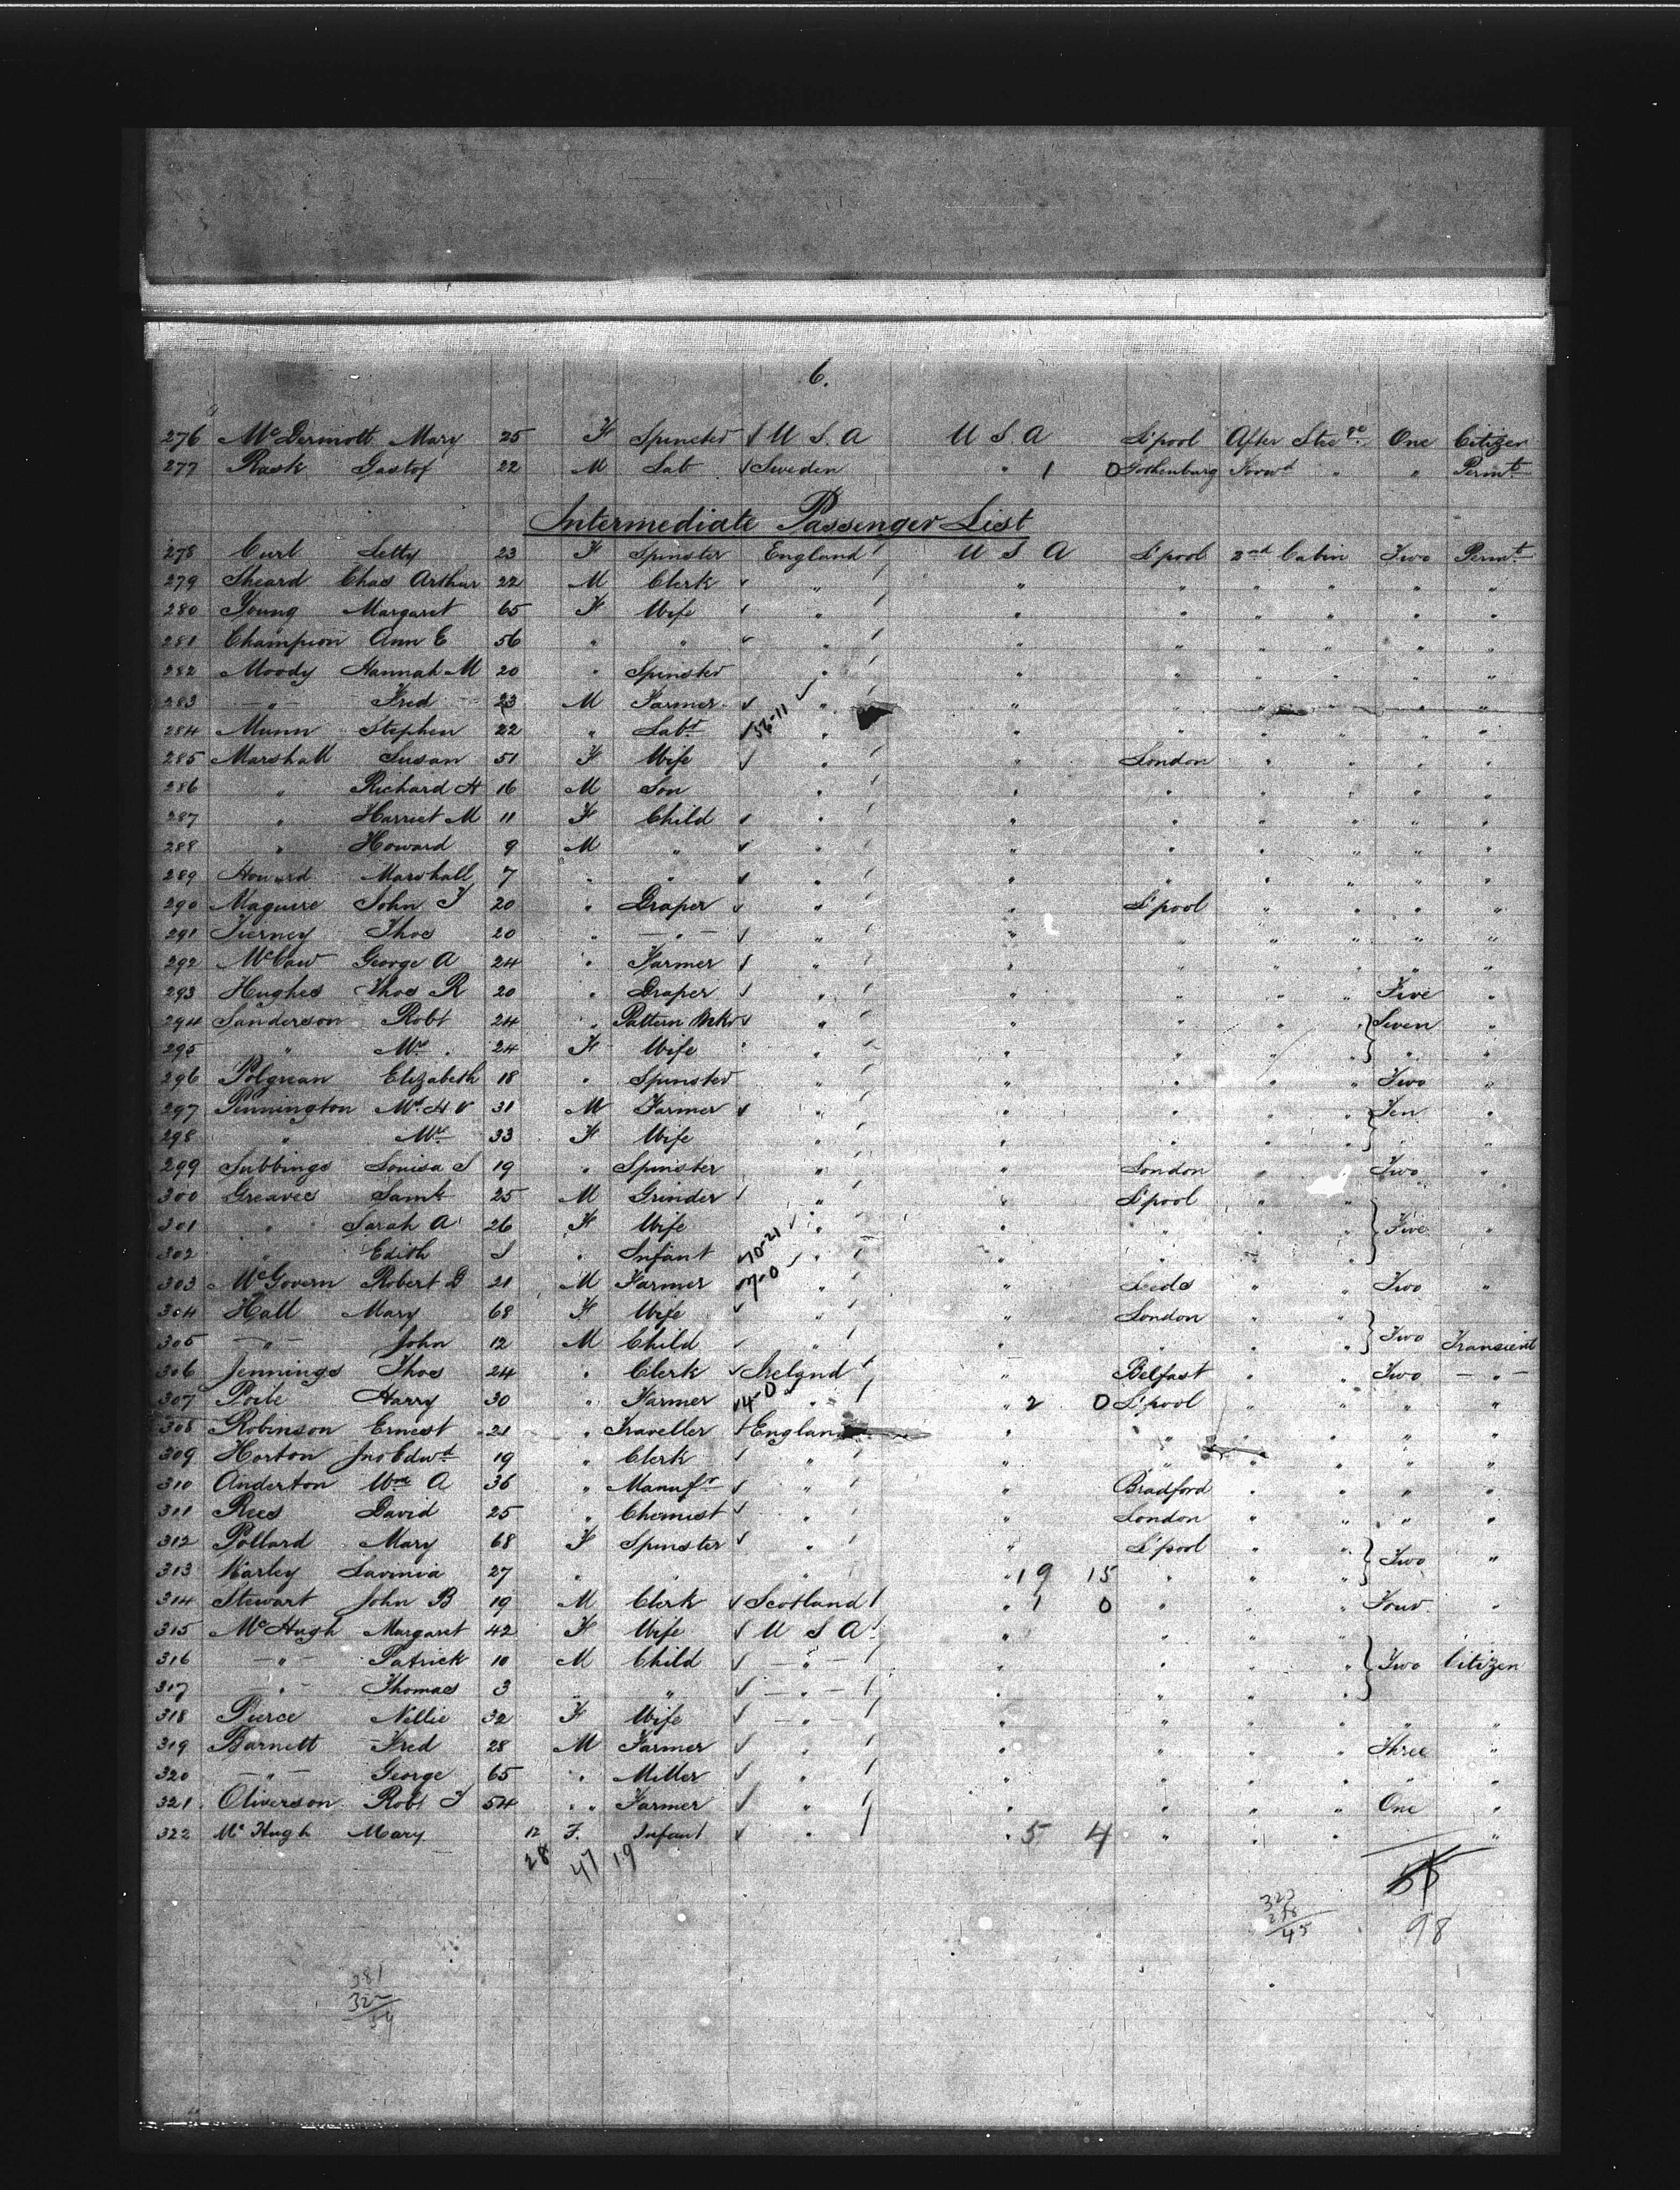 6.
276 McDermott Mary 25 F Spinster U S. A U S. A L'pool After Stre ge One Citizen
277 Rask Gustof 22 M Lab Sweden " 1 0 Gothenburg Forwd " " Permt
Intermediate Passenger List
278 Curl Letty 23 F Spinster England U S A L'pool 2nd Cabin Two Permt
279 Sheard Chas Arthur 22 M Clerk " " " " " " "
280 Young Margaret 65 F Wife " " " " " " "
281 Champion Ann E 56 " " " " " " " " "
282 Moody Hannah M 20 " Spinster " " " " " " "
283 — " — Fred 23 M Farmer " " " " " " "
284 Munn Stephen 22 " Labr 56-11 " " " " " " "
285 Marshall Susan 51 F Wife " " London " " " "
286 " Richard H 16 M Son " " " " " " "
287 " Harriet M 11 F Child " " " " " " "
288 " Howard 9 M " " " " " " " "
289 Howard Marshall 7 " " " " " " " " "
290 Maguire John T 20 " Draper " " L'pool " " " "
291 Tierney Thos 20 " — " — " " " " " " "
292 McCaw George A 24 " Farmer " " " " " " "
293 Hughes Thos R 20 " Draper " " " " " Five "
294 Sanderson Robt 24 " Pattern Mkr " " " " " Seven "
295 " Mrs 24 F Wife " " " " " " "
296 Polgrean Elizabeth 18 " Spinster " " " " " Two "
297 Pennington Mr. H V 31 M Farmer " " " " " Ten "
298 " Mrs 33 F Wife " " " " " " "
299 Subbings Louisa S 19 " Spinster " " London " " Two "
300 Greaves Saml 25 M Grinder " " L'pool " "
301 " Sarah A 26 F Wife " " " " " Five "
302 " Edith " Infant 70-21 " " " " "
303 McGovern Robert D 21 M Farmer 7-0 " " Leeds " " Two "
304 Hall Mary 68 F Wife " " London " "
305 — " — John 12 M Child " " " " " Two Transient
306 Jennings Thos 24 " Clerk Ireland " Belfast " " Two — " —
307 Harry 30 " Farmer 4-0 " " 2 0 L'pool " " " "
308 Robinson Ernest 21 " Traveller England " " " " " "
309 Horton Jno Edwd 19 " Clerk " " " " " " "
310 Anderton Wm A 36 " Manufr " " Bradford " " " "
311 Rees David 25 " Chemist " " London " " " "
312 Pollard Mary 68 F Spinster " " L'pool " " Two "
313 Marley Lavinia 27 " " " " 19 15 " " "
314 Stewart John B 19 M Clerk Scotland " 1 0 " " " Four "
315 McHugh Margaret 42 F Wife U S A " " " "
316 — " — Patrick 10 M Child — " — " " " " Two Citizen
317 — " — Thomas 3 " " — " — " " " "
318 Pierce Nellie 32 F Wife — " — " " " " " "
319 Barnett Fred 28 M Farmer " " " " " Three "
320 — " — George 65 " Miller " " " " " " "
321 Oliverson Robt T 54 " " Farmer " " " " " One "
322 McHugh Mary 12 F. Infant " " 5 4 " " " "
28 47 19
98
323
278
45
381
322
59